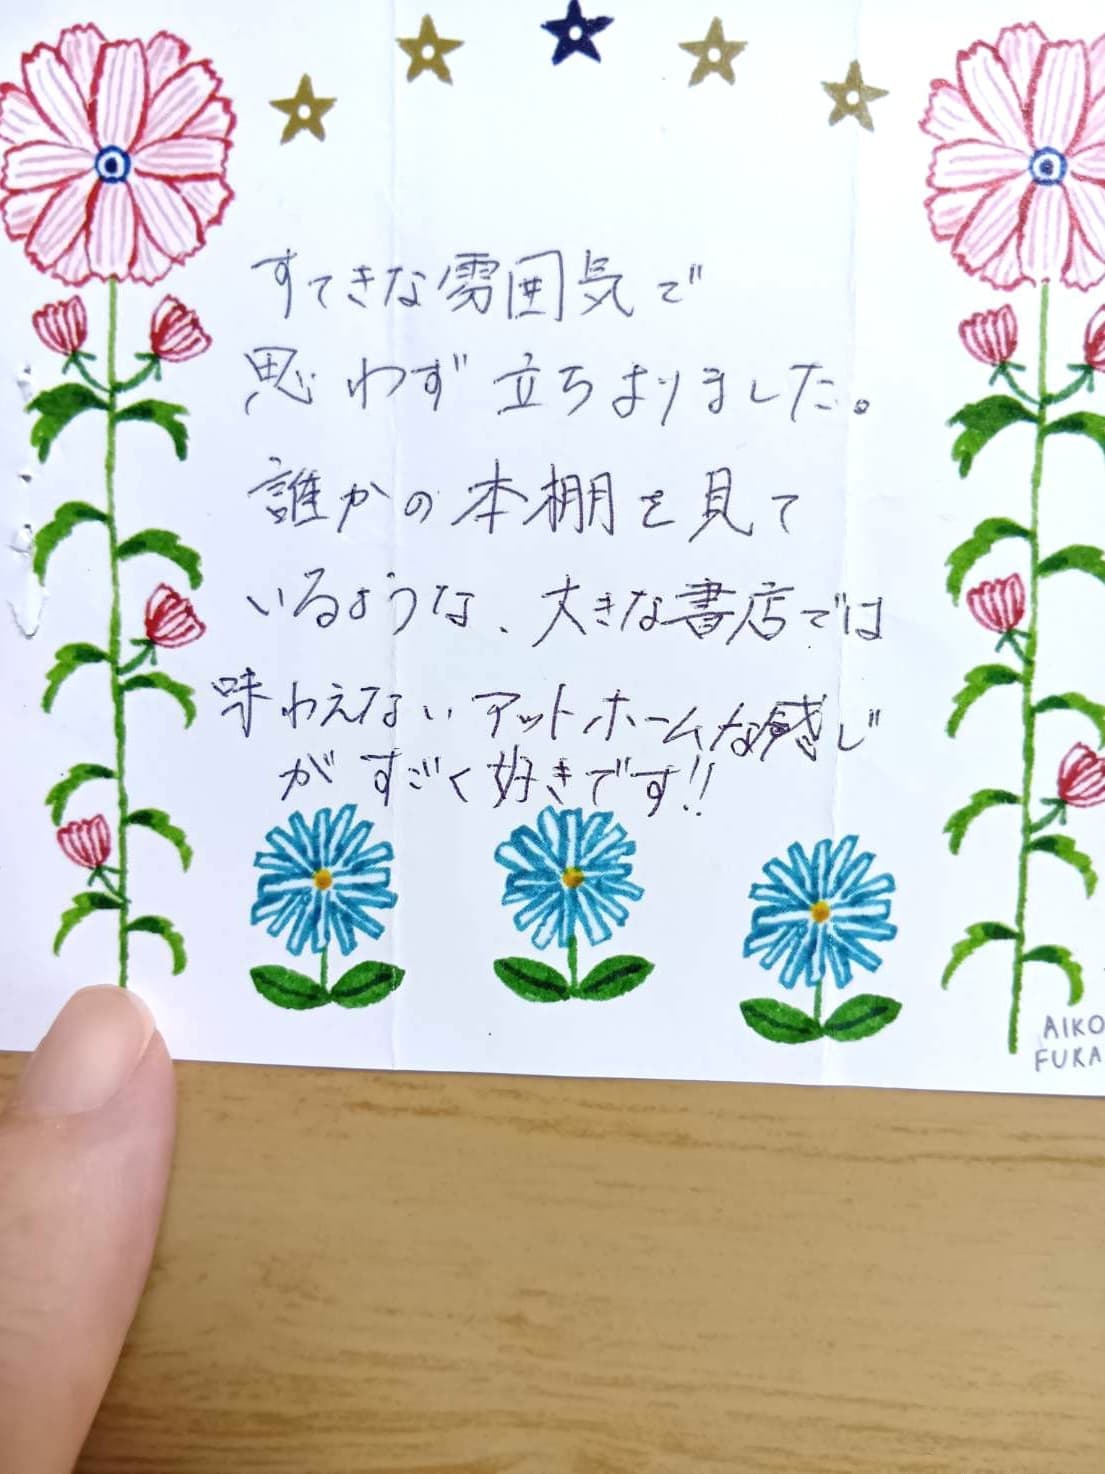 すてきな雰囲気で
思わず立ちよりました。
誰かの本棚を見て
いるような、大きな書店では
味わえないアットホームな感じ
がすごく好きです!!
AIKO
FUKA